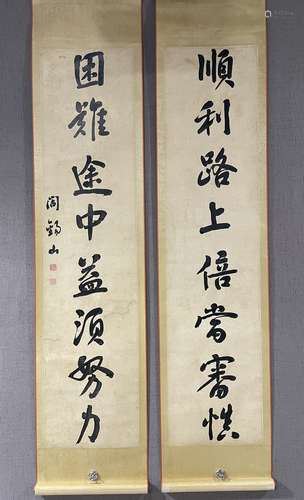 順利路上倍當審慎
困難途中益須努力
閻錫山